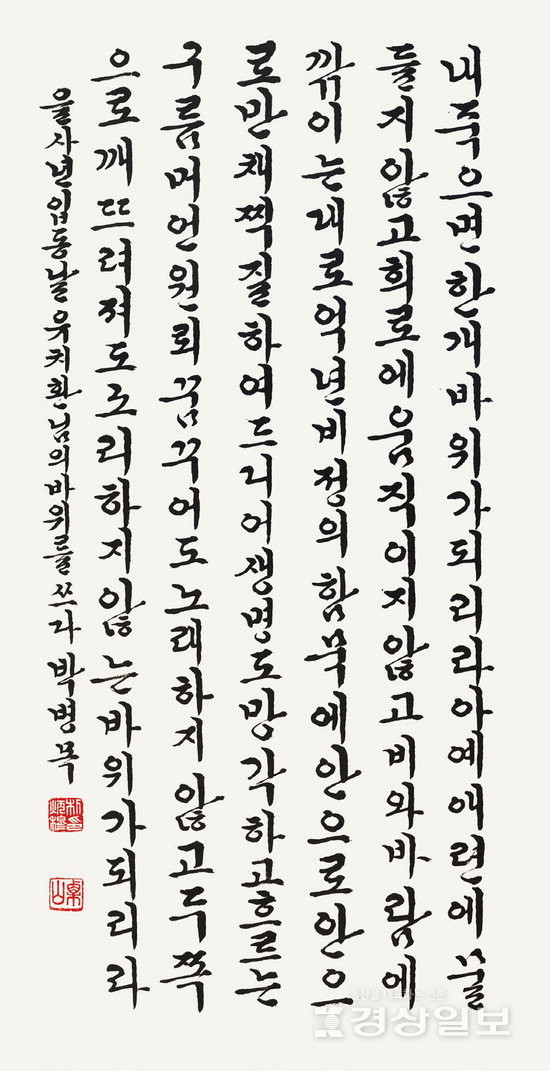 내죽으면한개바위가되리라아예애련에물
들지않고희로에움직이지않고비와바람에
깎이는대로억년비정의함묵에안으로안으
로만채찍질하여드디어생명도망각하고흐르는
구름머언원뢰꿈꾸어도노래하지않고두쪽
으로깨뜨려져도소리하지않는바위가되리라
을사년입동날유치환님의바위를쓰다 박병목
경상일보